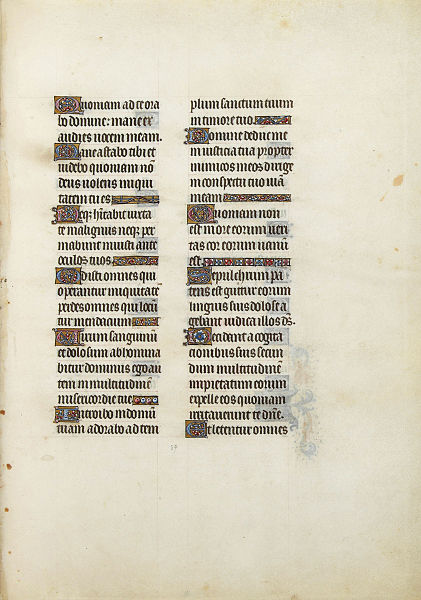 Quoniam ad te ora
bo domine: mane ex
audies vocem meam.
Mane astabo tibi et
videbo quoniam nō
deus volens iniqui
tatem tu es
Neq; hītabit iuxta
te malignus neqꝫ per
manebunt iniusti ante
oculos tuos
Odisti omnes qui
operantur iniquitatē
perdes omnes qui locū
tur mendacium
Virum sanguinū
et dolosum abhomina
bitur dominus ego au
tem in multitudinē
misericordie tue
Introibo in domū
tuam adorabo ad tem
plum sanctum tuum
in timore tuo.
Domine deduc me
in iusticia tua propter
inimicos meos dirige
in conspectu tuo viā
meam
Quoniam non
est in ore eorum veri
tas cor eorum vanū
est.
Sepulchrum pa
tens est guttur eorum
linguis suis dolose a
gebant iudica illos ds.
Decidant a cogita
cionibus suis secun
dum multitudinem
impietatum eorum
expelle eos quoniam
irritaverunt te dne.
Et letentur omnes